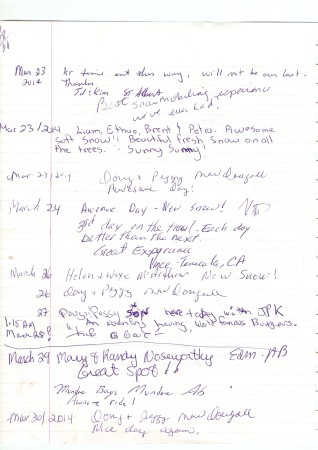 Mar 23 1st time out this way, will not be our last.
2014 Thanks
Ted & Kim St Albert
Best snowmobiling experience
we've ever had.
Mar 23/2014 Liam, Ethan, Brent & Petra. Awesome
soft snow!! Beautiful fresh snow on all
the trees. Sunny Sunny!
Mar 23/2014 Doug & Peggy MacDougall
Awesome day!
March 24 Awesome Day - New Snow!
3rd day on the trail. Each day
better than the next.
Great Experience
Temecula, CA
March 26 Helen & Wayne New Snow!
26 Doug & Peggy MacDougall
27 Doug & Peggy here today with JPK
1:15 AM
March 28? An evening having, World famous Burgers.
March 29 Mary & Randy Edm. AB
Great Spot!!
Mundare Boys Mundare Ab
Awesome ride!
Mar 30/2014 Doug & Peggy MacDougall
Nice day again.